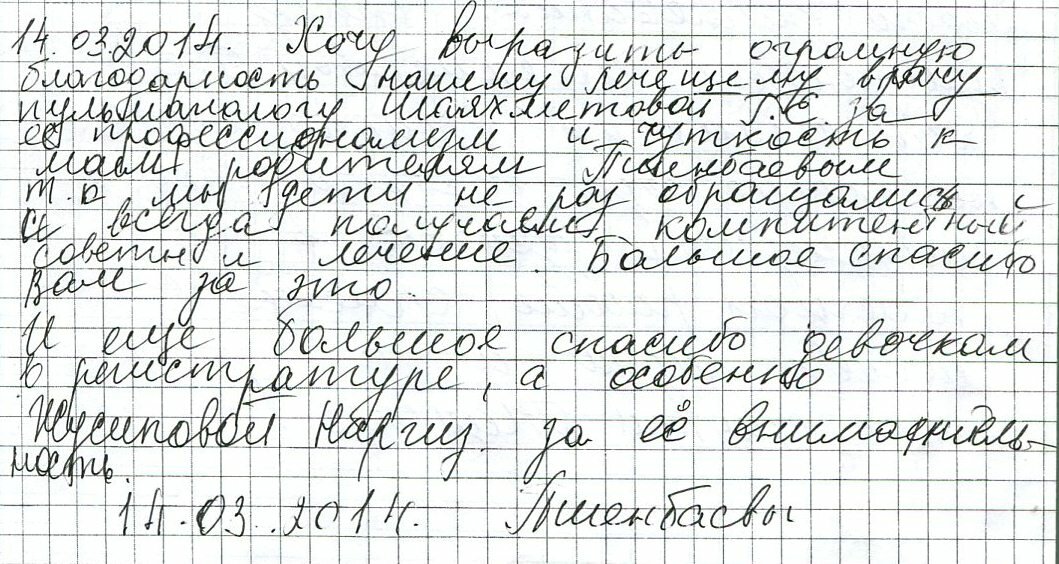 14.03.2014. Хочу выразить огромную
благодарность нашему лечещему врачу
пульманологу Шаяхметовой Г.Е. за
её профессионализм и чуткость к
маим родителям Пшенбаевым
т.к мы дети не раз обращались
и всегда получали компитентный
советы и лечение. Большое спасибо
Вам за это.
И еще большое спасибо девочкам
в регистратуре, а особенно
Жусиповой Наргиз за её вниматель-
ность.
14.03.2014. Пшенбаевы